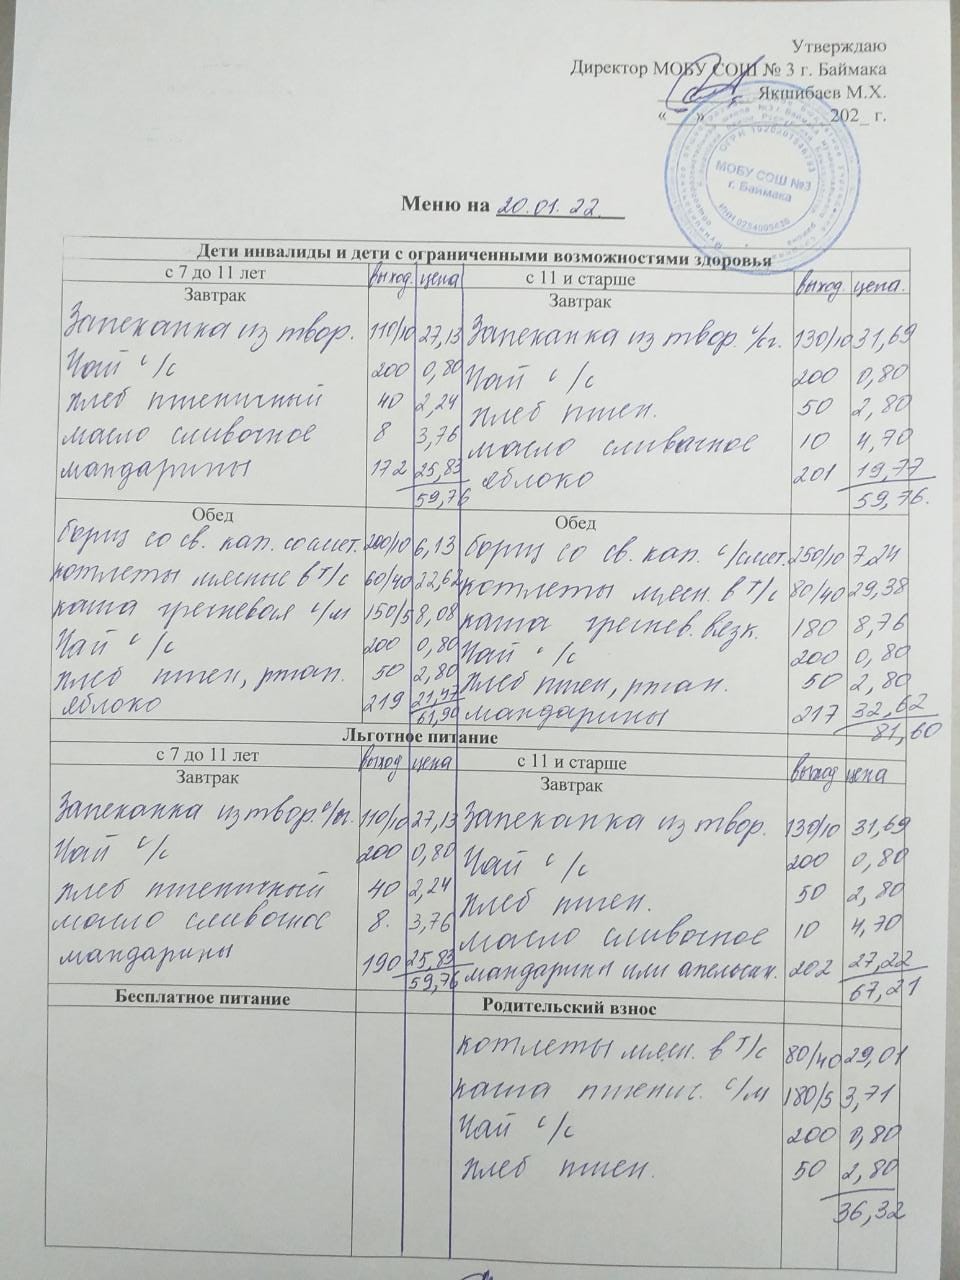 Утверждаю
Директор МОБУ СОШ № 3 г. Баймака
Якшибаев М.Х.
«___» ____________202_ г.
МОБУ СОШ №3
г. Баймака
Меню на 20.01.22
Дети инвалиды и дети с ограниченными возможностями здоровья
с 7 до 11 лет выход. цена с 11 и старше выход. цена.
Завтрак Завтрак
Запеканка из твор. 110/10 27,13 Запеканка из твор. с/сг. 130/10 31,69
Чай с/с 200 0,80 Чай с/с 200 0,80
хлеб пшеничный 40 2,24 хлеб пшен. 50 2,80
масло сливочное 8 3,76 масло сливочное 10 4,70
мандарины 172 25,83 яблоко 201 19,77
59,76 59,76.
Обед Обед
борщ со св. кап. со смет. 200/10 6,13 борщ со св. кап. с/смет. 250/10 7,24
котлеты мясные в т/с 60/40 22,62 котлеты мясн. в т/с 80/40 29,38
каша гречневая с/м 150/5 8,08 каша гречнев. вязк. 180 8,76
Чай с/с 200 0,80 Чай с/с 200 0,80
хлеб пшен, ржан. 50 2,80 хлеб пшен, ржан. 50 2,80
яблоко 219 21,47 мандарины 217 32,62
61,90 81,60
Льготное питание
с 7 до 11 лет выход цена с 11 и старше выход цена
Завтрак Завтрак
Запеканка из твор. 110/10 27,13 Запеканка из твор. 130/10 31,69
Чай с/с 200 0,80 Чай с/с 200 0,80
хлеб пшеничный 40 2,24 хлеб пшен. 50 2,80
масло сливочное 8. 3,76 масло сливочное 10 4,70
мандарины 190 25,83 мандарины или апельсин. 202 27,22
59,76 67,21
Бесплатное питание Родительский взнос
котлеты мясн. в т/с 80/40 29,01
каша пшенич. с/м 180/5 3,71
Чай с/с 200 0,80
хлеб пшен. 50 2,80
36,32